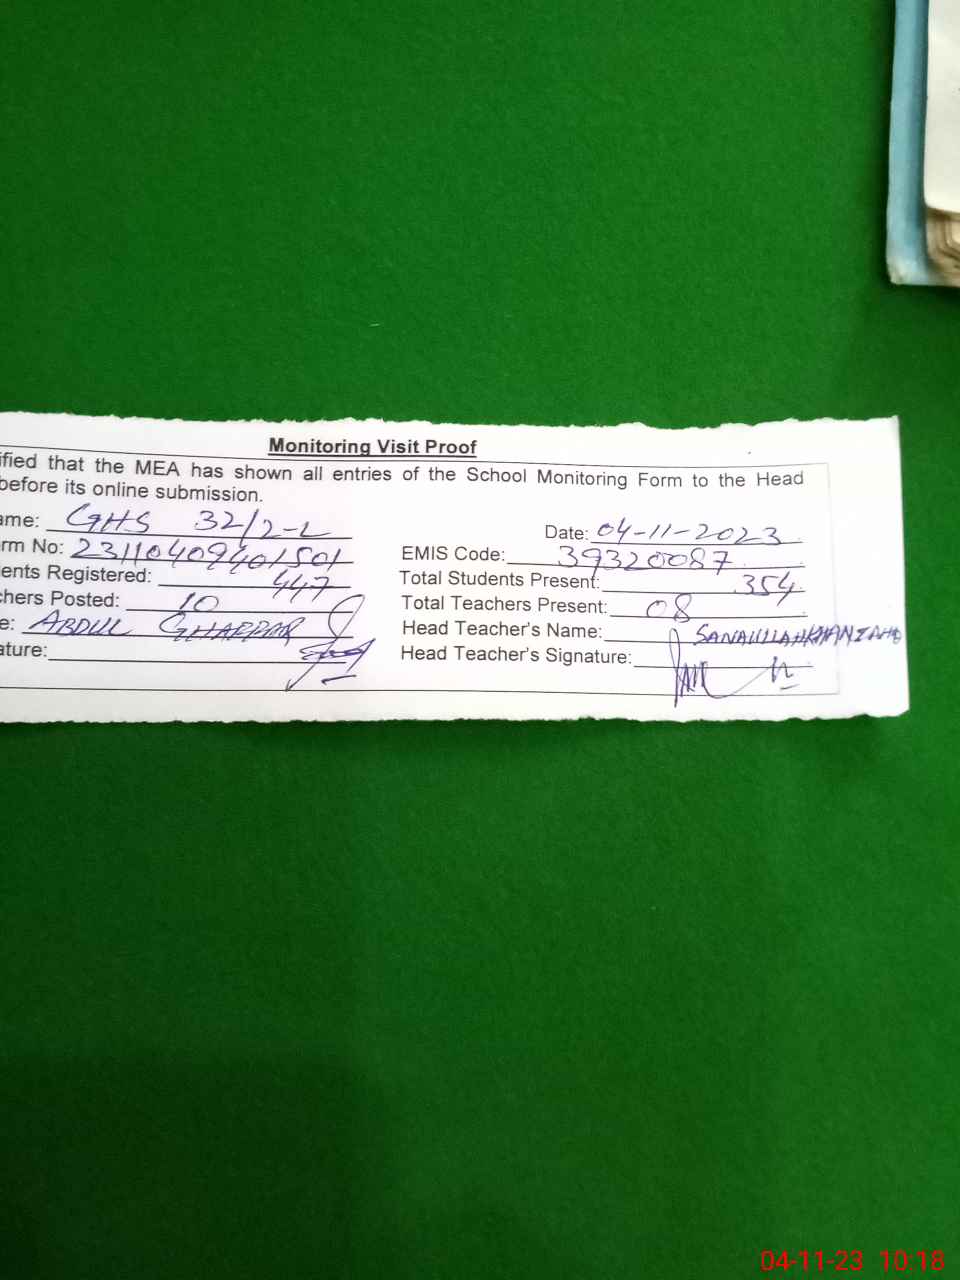 Monitoring Visit Proof
ified that the MEA has shown all entries of the School Monitoring Form to the Head
before its online submission.
ame: GHS 32/2-L Date: 04-11-2023
rm No: 23110409401501 EMIS Code: 39320087
ents Registered: 447 Total Students Present: 354
chers Posted: 10 Total Teachers Present: 08
e: ABDUL GHAFFAR Head Teacher's Name:
ature: Head Teacher's Signature:
04-11-23 10:18